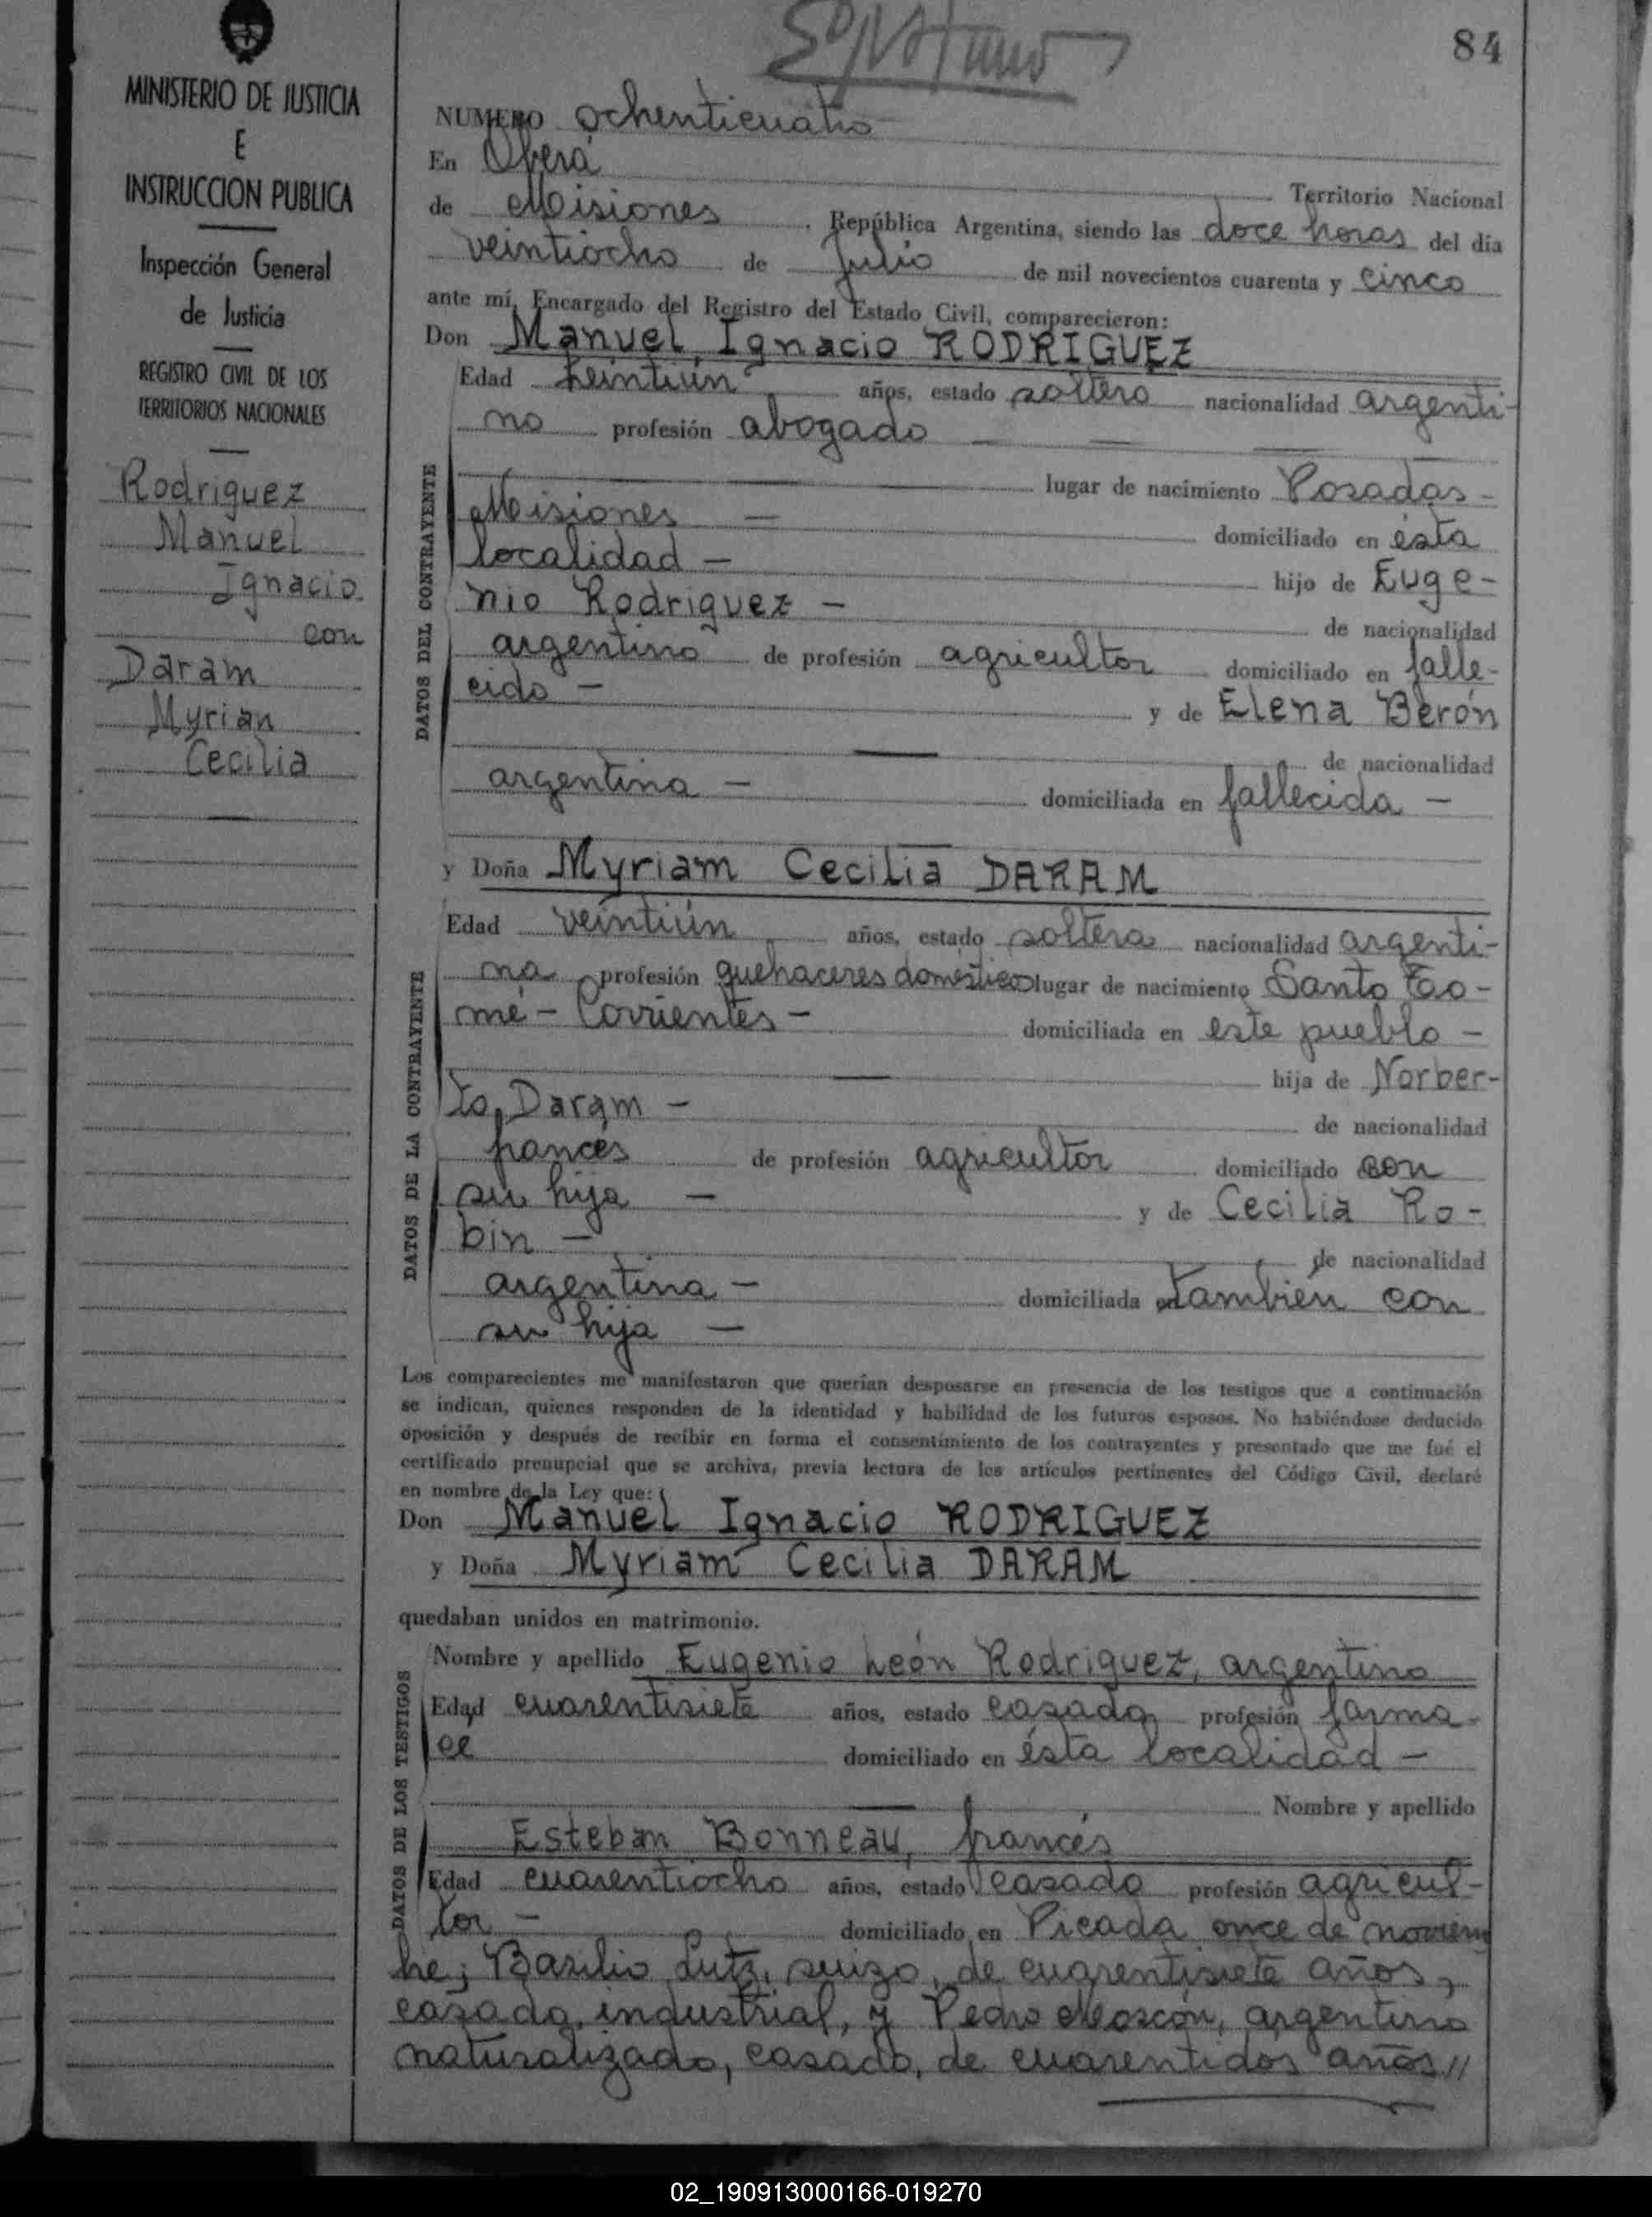 84
MINISTERIO DE JUSTICIA
E
INSTRUCCION PUBLICA
Inspección General
de Justicia
REGISTRO CIVIL DE LOS
TERRITORIOS NACIONALES
Rodriguez
Manuel
Ignacio
con
Daram
Myrian
Cecilia
NUMERO ochenticuatro
En Oberá Territorio Nacional
de Misiones, República Argentina, siendo las doce horas del día
veintiocho de Julio de mil novecientos cuarenta y cinco
ante mí, Encargado del Registro del Estado Civil, comparecieron:
Don Manuel Ignacio RODRIGUEZ
DATOS DEL CONTRAYENTE
Edad veintiún años, estado soltero nacionalidad argenti-
no profesión abogado —
— lugar de nacimiento Posadas-
Misiones — domiciliado en ésta
localidad — hijo de Euge-
nio Rodriguez — de nacionalidad
argentino de profesión agricultor domiciliado en falle-
cido — y de Elena Berón
— de nacionalidad
argentina — domiciliada en fallecida —
y Doña Myriam Cecilia DARAM
DATOS DE LA CONTRAYENTE
Edad veintiún años, estado soltera nacionalidad argenti-
na profesión quehaceres domésticos lugar de nacimiento Santo To-
mé - Corrientes - domiciliada en este pueblo —
— hija de Norber-
to Daram — de nacionalidad
francés de profesión agricultor domiciliado con
su hija — y de Cecilia Ro-
bin — de nacionalidad
argentina — domiciliada también con
su hija —
Los comparecientes me manifestaron que querían desposarse en presencia de los testigos que a continuación
se indican, quienes responden de la identidad y habilidad de los futuros esposos. No habiéndose deducido
oposición y después de recibir en forma el consentimiento de los contrayentes y presentado que me fué el
certificado prenupcial que se archiva, previa lectura de los artículos pertinentes del Código Civil, declaré
en nombre de la Ley que:
Don Manuel Ignacio RODRIGUEZ
y Doña Myriam Cecilia DARAM
quedaban unidos en matrimonio.
DATOS DE LOS TESTIGOS
Nombre y apellido Eugenio León Rodriguez, argentino
Edad cuarentisiete años, estado casado profesión farma-
ce domiciliado en ésta localidad —
— Nombre y apellido
Esteban Bonneau, francés
Edad cuarentiocho años, estado casado profesión agricul-
tor — domiciliado en Picada once de noviem
bre; Basilio Lutz, suizo, de cuarentisiete años,
casado, industrial, y Pedro Moscón, argentino
naturalizado, casado, de cuarentidos años//
02_190913000166-019270